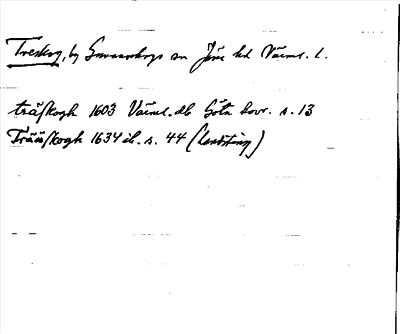 Treskog, by Gunnarskogs sn Jösse hd Värml. l.
träskogh 1603 Värml. db Göta hovr. s. 13
Trääskogh 1634 ib. s. 44 (landsting)